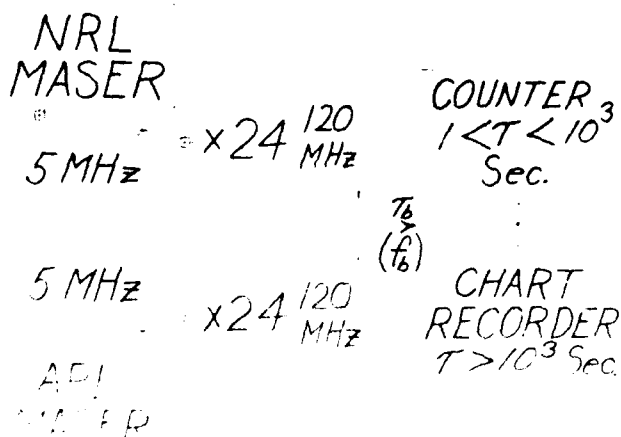 NRL
MASER
5 MHz
×24 120
MHz
COUNTER
1 < τ < 10³
Sec.
τb
>
(fb)
5 MHz
×24 120
MHz
CHART
RECORDER
τ > 10³ Sec.
MASER